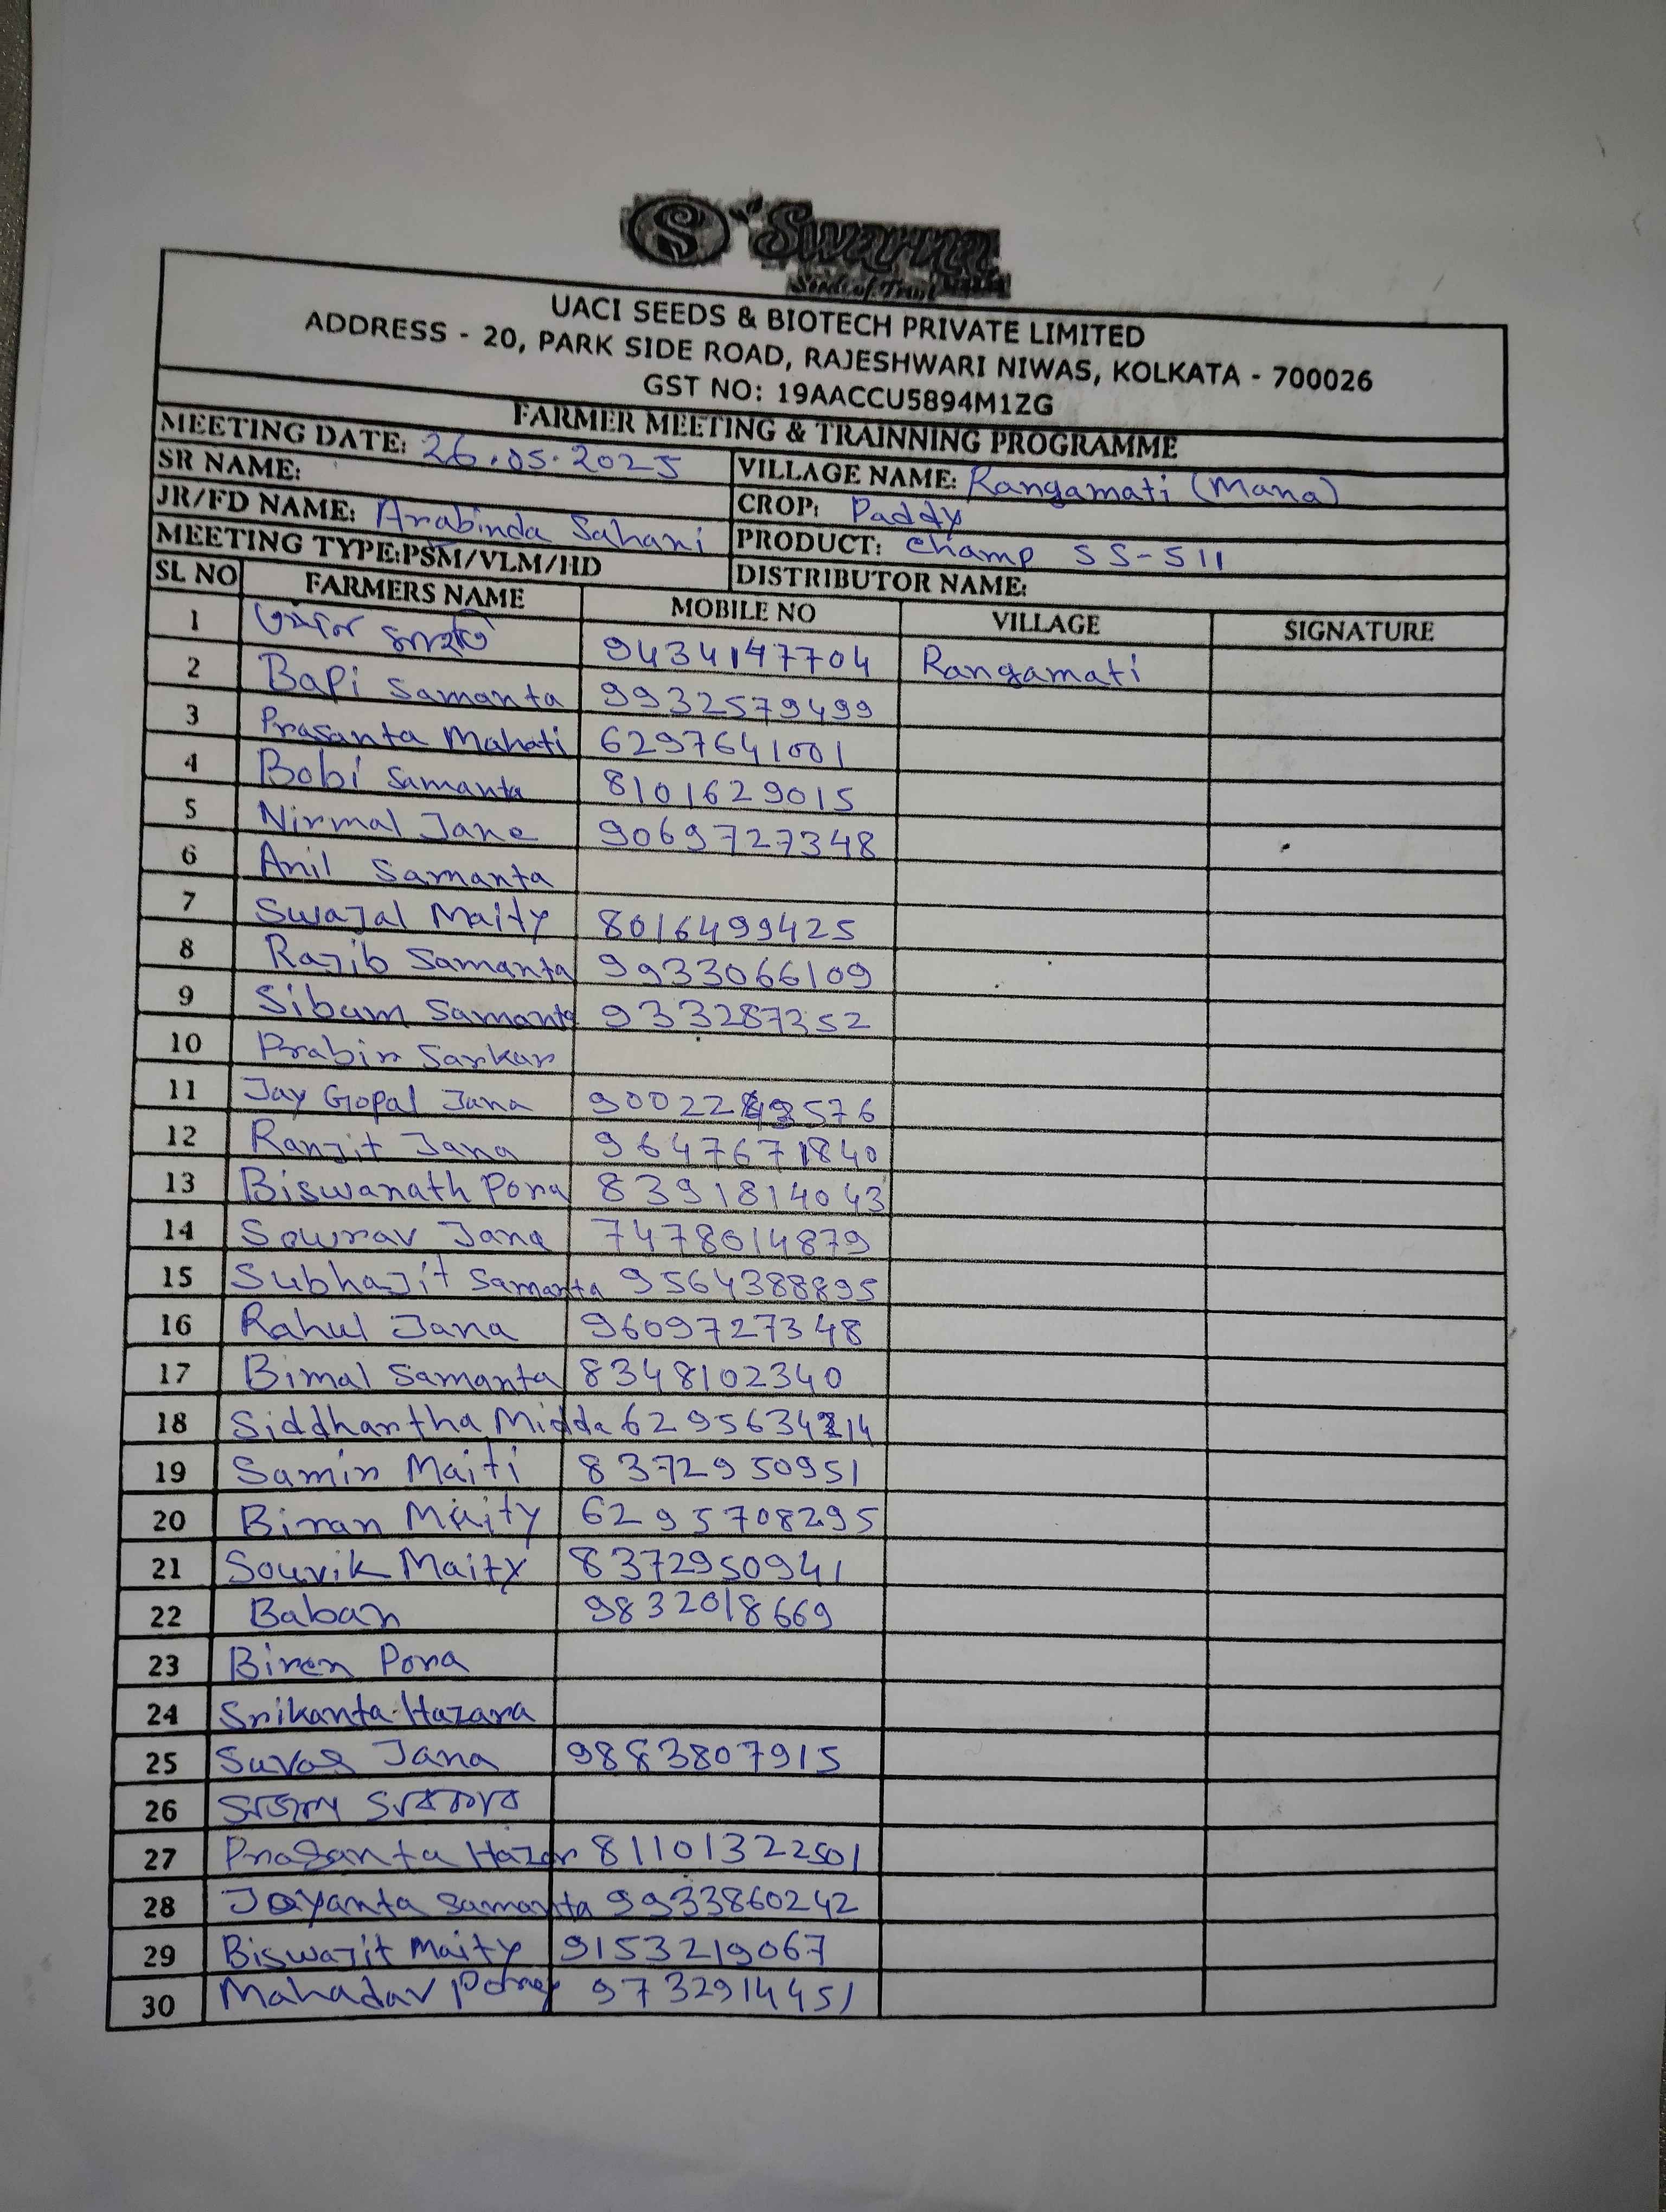 S Swarna
Seeds of Trust
UACI SEEDS & BIOTECH PRIVATE LIMITED
ADDRESS - 20, PARK SIDE ROAD, RAJESHWARI NIWAS, KOLKATA - 700026
GST NO: 19AACCU5894M1ZG
FARMER MEETING & TRAINNING PROGRAMME
MEETING DATE: 26.05.2025 VILLAGE NAME: Rangamati (Mana)
SR NAME: CROP: Paddy
JR/FD NAME: Arabinda Sahani PRODUCT: champ SS-511
MEETING TYPE:PSM/VLM/HD DISTRIBUTOR NAME:
SL NO FARMERS NAME MOBILE NO VILLAGE SIGNATURE
1 9434147704 Rangamati
2 Bapi Samanta 9932579499
3 Prasanta Mahati 6297641001
4 Bobi Samanta 8101629015
5 Nirmal Jana 9069727348
6 Anil Samanta
7 Swajal Maity 8016499425
8 Rajib Samanta 9933066109
9 Sibam Samanta 9333287352
10 Prabir Sarkar
11 Jay Gopal Jana
12 Ranjit Jana 9647671840
13 Biswanath Pora 8391814043
14 Sourav Jana 7478014879
15 Subhajit Samanta 9564388895
16 Rahul Jana 9609727348
17 Bimal Samanta 8348102340
18 Siddhantha Midda
19 Samir Maiti 8372950951
20 Biran Maity 6295708295
21 Souvik Maity 8372950941
22 Baban 9832018669
23 Biren Pora
24 Srikanta Hazara
25 Suvas Jana 9883807915
26 সজল সরকার
27 Prasanta Hazar 81101322501
28 Joyanta Samanta 9933860242
29 Biswajit Maity 9153219067
30 Mahadav 9732914451